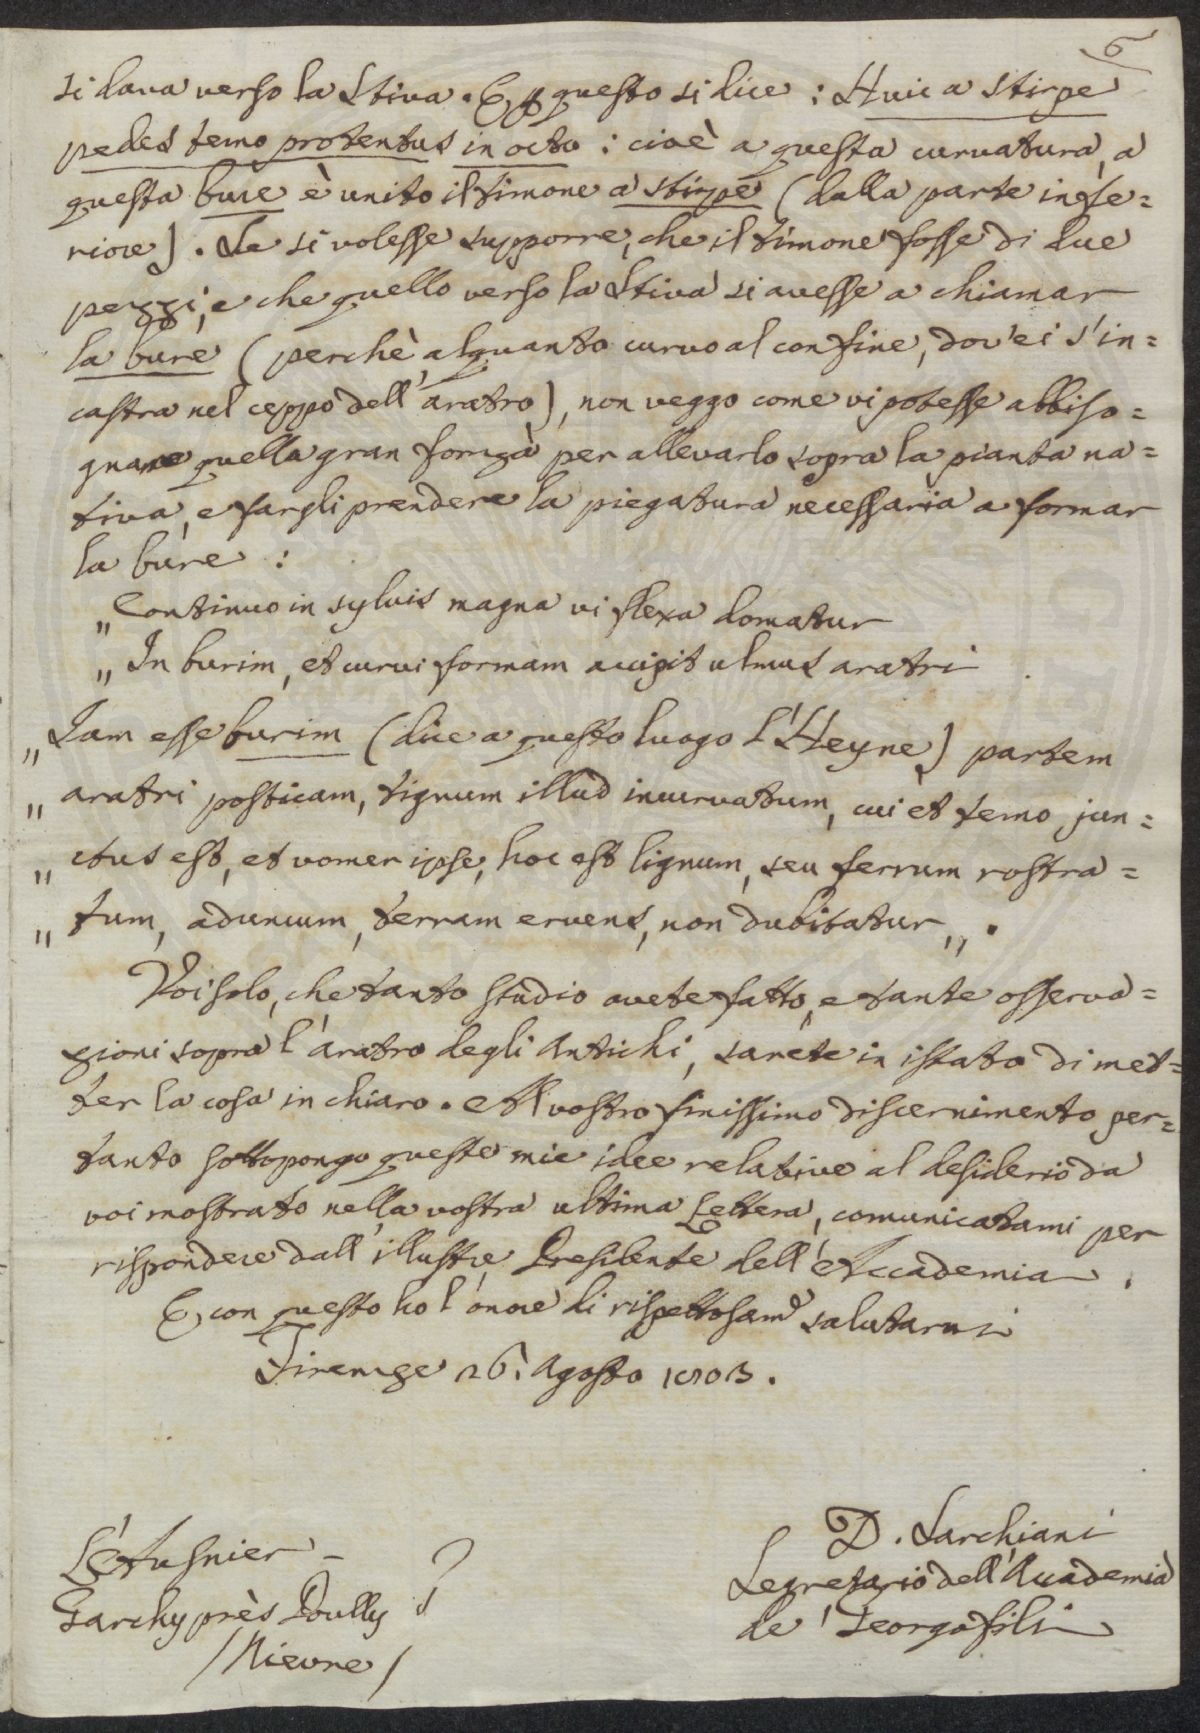 6
si dava verso la Stiva. E p questo si dice: Huic a stirpe
pedes temo protentus in octo: cioè a questa curvatura, a
questa bure è unito il timone a stirpe (dalla parte infe=
riore). Se si volesse supporre, che il timone fosse di due
pezzi, e che quello verso la Stiva si avesse a chiamar
la bure (perchè alquanto curvo al confine, dov'ei s'in=
castra nel ceppo dell'aratro), non veggo come vi potesse abbiso=
gnare quella gran forza per allevarlo sopra la pianta na=
tiva, e fargli prendere la piegatura necessaria a formar
la bure:
„ Continuo in sylvis magna vi flexa domatur
„ In burim, et curvi formam accipit ulmus aratri
„ Jam esse burim (dice a questo luogo l'Heyne) partem
„ aratri posticam, tignum illud incurvatum, cui et temo jun=
„ ctus est, et vomer ipse, hoc est lignum, seu ferrum rostra=
„ tum, aduncum, terram eruens, non dubitatur„.
Voi solo, che tanto studio avete fatto, e tante osserva=
zioni sopra l'aratro degli Antichi, sarete in istato di met=
ter la cosa in chiaro. Al vostro finissimo discernimento per=
tanto sottopongo queste mie idee relative al desiderio da
voi mostrato nella vostra ultima Lettera, comunicatami per
rispondere dall'illustre Presidente dell'Accademia.
E con questo ho l'onore di rispettosam.e salutarvi
Firenze 26. Agosto 1803.
D. Sarchiani
Segretario dell'Accademia
de' Georgofili
Garchy près Poully
/Nievre/